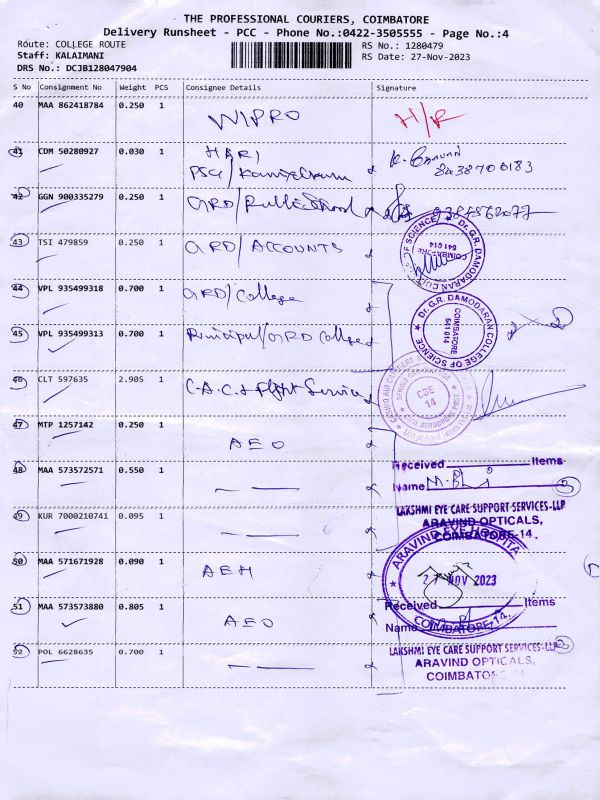 THE PROFESSIONAL COURIERS, COIMBATORE
Delivery Runsheet - PCC - Phone No.:0422-3505555 - Page No.:4
Route: COLLEGE ROUTE
RS No.: 1280479
Staff: KALAIMANI
RS Date: 27-Nov-2023
DRS No.: DCJB128047904
S No Consignment No Weight PCS Consignee Details Signature
40 MAA 862418784 0.250 1 WIPRO H/R
41 CDM 50280927 0.030 1 HARI
PSG/
8438700183
42 GGN 900335279 0.250 1 GRD/
43 TSI 479859 0.250 1 GRD/ACCOUNTS
DR. G.R. DAMODARAN COLLEGE OF SCIENCE
COIMBATORE
641 014
44 VPL 935499318 0.700 1 GRD/College
45 VPL 935499313 0.700 1 Principal/GRD College
Dr. G.R. DAMODARAN COLLEGE OF SCIENCE
COIMBATORE
641 014
46 CLT 597635 2.905 1 C.A.C. & Flight Service
CBE
14
47 MTP 1257142 0.250 1 AEO
48 MAA 573572571 0.550 1
Received Items
Name
3
LAKSHMI EYE CARE SUPPORT SERVICES-LLP
ARAVIND OPTICALS,
COIMBATORE-14.
49 KUR 7000210741 0.095 1
50 MAA 571671928 0.090 1 AEH
ARAVIND EYE HOSPITAL
27 NOV 2023
COIMBATORE-14.
51 MAA 573573880 0.805 1 AEO
Received Items
Name
52 POL 6628635 0.700 1
LAKSHMI EYE CARE SUPPORT SERVICES-LLP
ARAVIND OPTICALS,
COIMBATORE-14